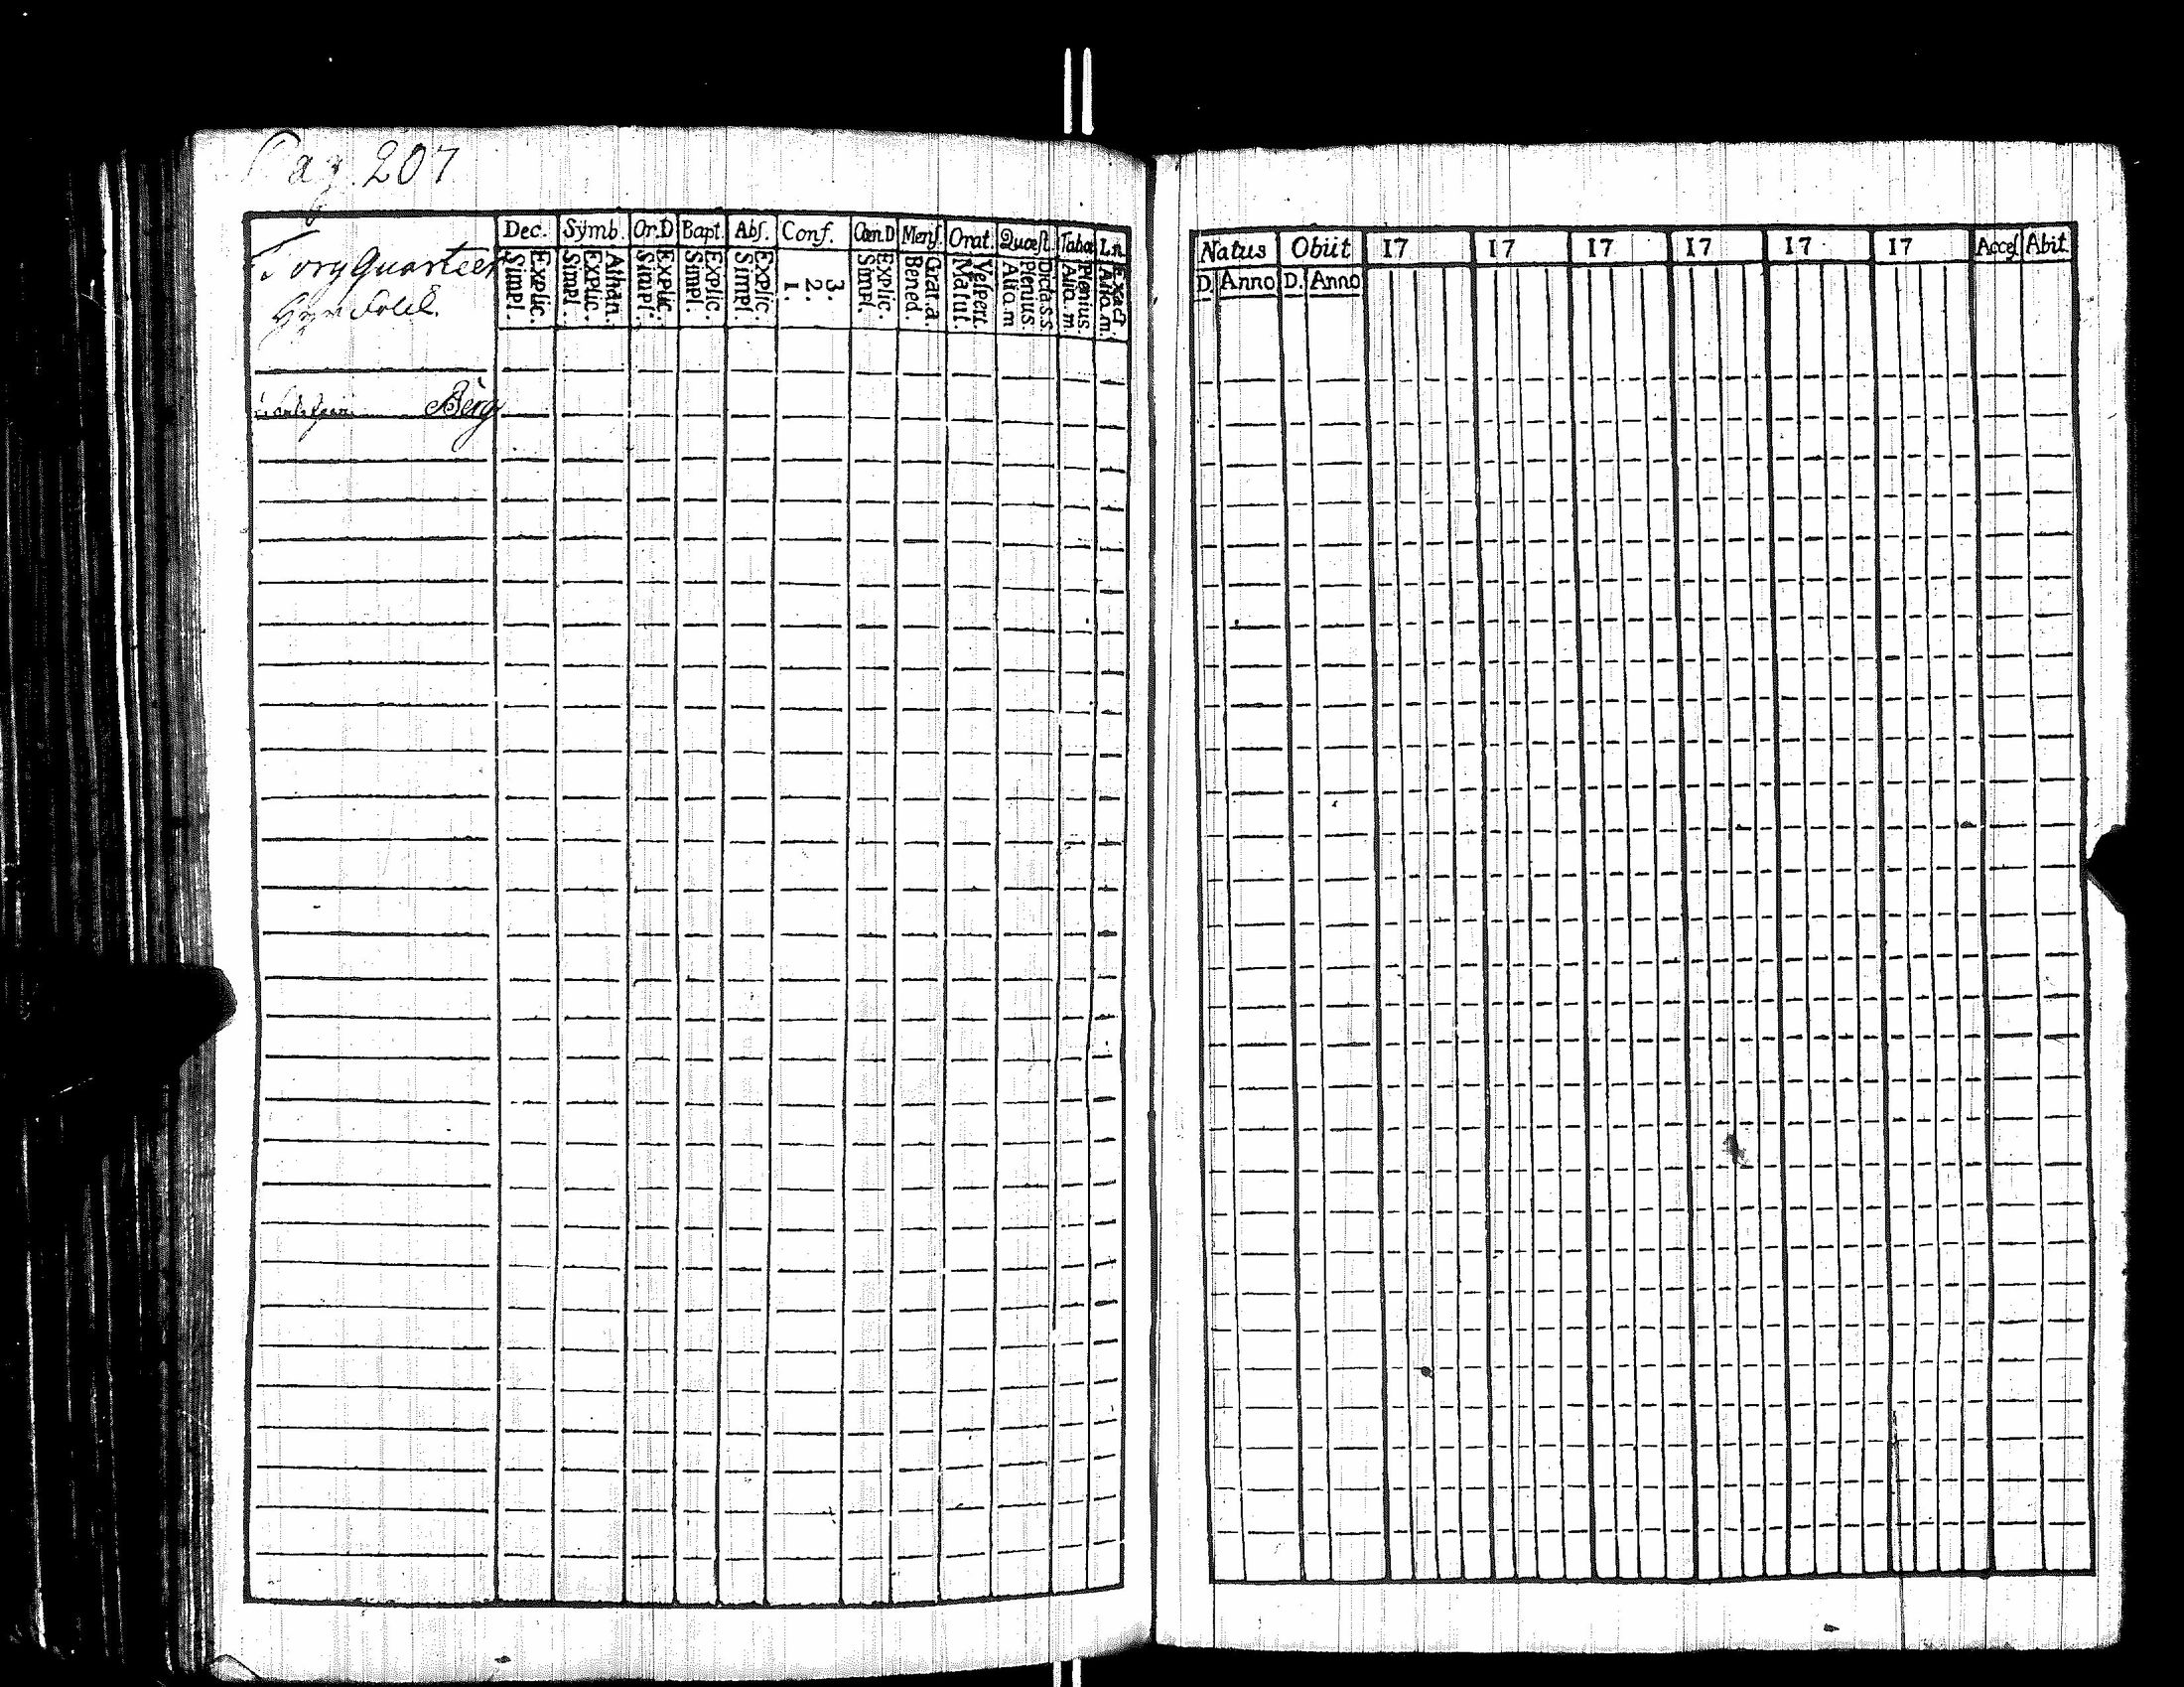 Pag. 207
Torg Quarteer
Dec. Symb. Or.D Bapt. Abſ. Conf. Cœn.D Menſ. Orat. Quæſt. Taba Ln
Simpl. Explic. Simpl. Explic. Athan. Simpl. Explic. Simpl. Explic. Simpl. Explic. 1. 2. 3. Simpl. Explic. Bened. Grat.a. Matut. Veſpert. Aliq.m Plenius. Dicta.s.s Aliq.m. Plenius. Aliq.m. Exact.
Berg
Natus Obiit 17 17 17 17 17 17 Acceſ Abit
D. Anno D. Anno